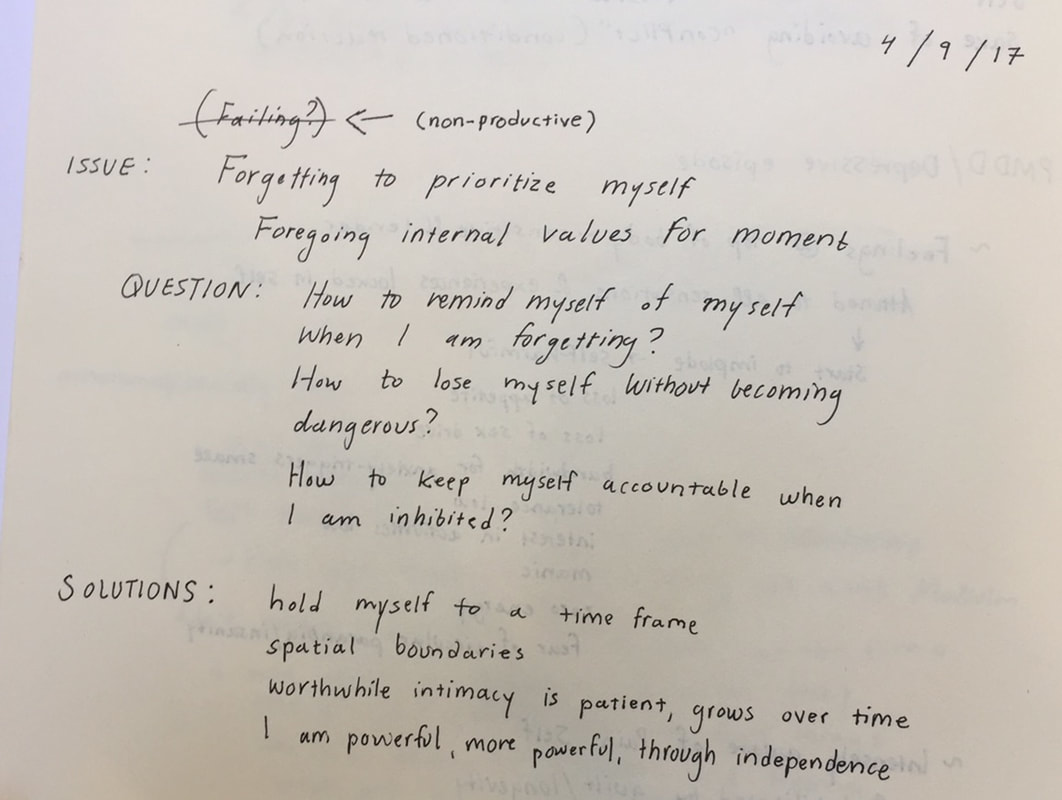 4/9/17
(Failing?) ← (non-productive)
ISSUE: Forgetting to prioritize myself
Foregoing internal values for moment
QUESTION: How to remind myself of myself
when I am forgetting?
How to lose myself without becoming
dangerous?
How to keep myself accountable when
I am inhibited?
SOLUTIONS: hold myself to a time frame
spatial boundaries
worthwhile intimacy is patient, grows over time
I am powerful, more powerful, through independence